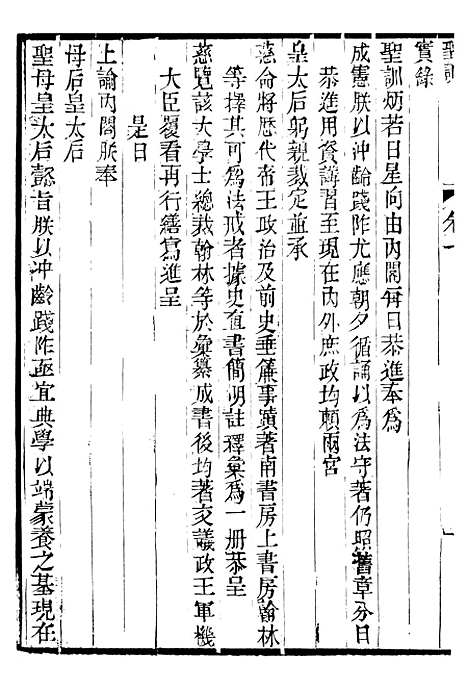 實錄
聖訓炳若日星向由內閣每日恭進奉為
成憲朕以沖齡踐阼尤應朝夕循誦以為法守著仍照舊章分日
恭進用資講習至現在內外庶政均賴兩宮
皇太后躬親裁定並承
慈命將歷代帝王政治及前史垂簾事蹟著南書房上書房翰林
等擇其可為法戒者據史直書簡明註釋彙為一册恭呈
慈覽該大學士總裁翰林等於彙纂成書後均著交議政王軍機
大臣覆看再行繕寫進呈
是日
上諭內閣朕奉
母后皇太后
聖母皇太后懿旨朕以沖齡踐阼亟宜典學以端蒙養之基現在